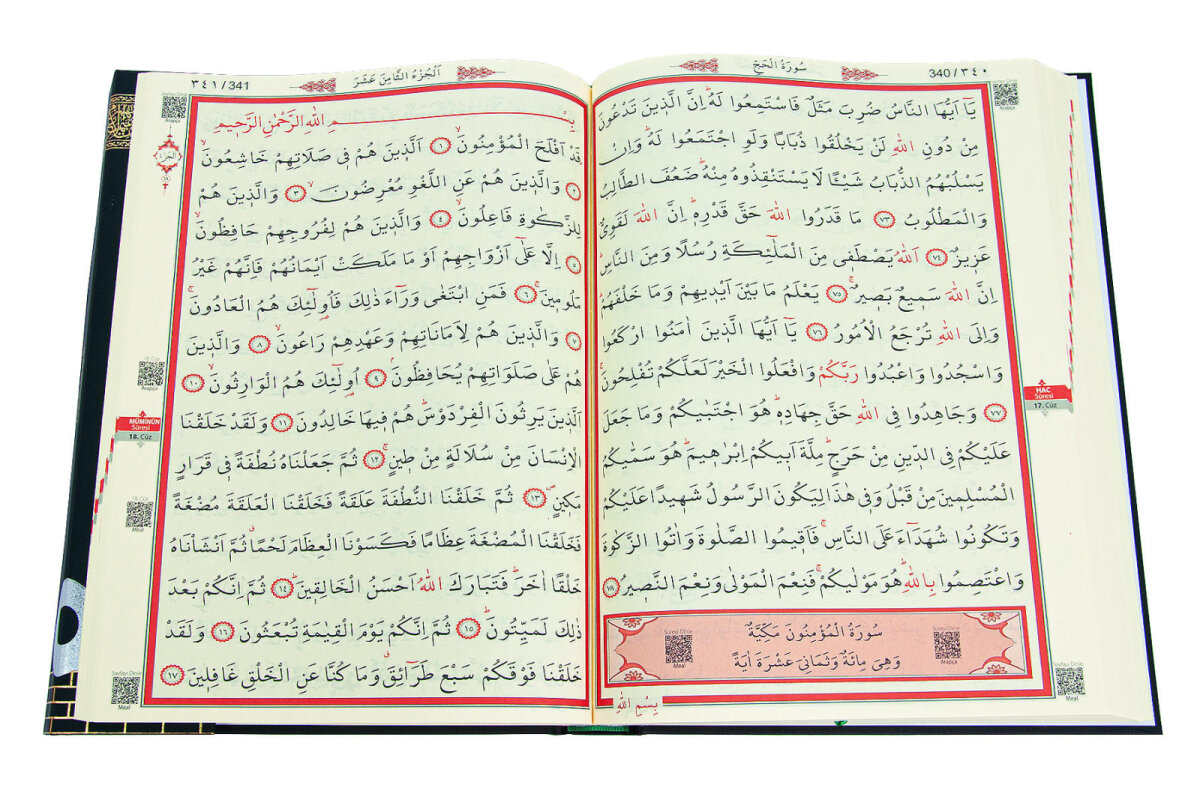 سُورَةُ الْحَجِّ
340 / ٣٤٠
Sayfayı Dinle
Arapça
يَٓا اَيُّهَا النَّاسُ ضُرِبَ مَثَلٌ فَاسْتَمِعُوا لَهُۜ اِنَّ الَّذ۪ينَ تَدْعُونَ
مِنْ دُونِ اللّٰهِ لَنْ يَخْلُقُوا ذُبَابًا وَلَوِ اجْتَمَعُوا لَهُۜ وَاِنْ
يَسْلُبْهُمُ الذُّبَابُ شَيْـًٔا لَا يَسْتَنْقِذُوهُ مِنْهُۜ ضَعُفَ الطَّالِبُ
وَالْمَطْلُوبُ ٧٣ مَا قَدَرُوا اللّٰهَ حَقَّ قَدْرِه۪ۜ اِنَّ اللّٰهَ لَقَوِيٌّ
عَز۪يزٌ ٧٤ اَللّٰهُ يَصْطَف۪ي مِنَ الْمَلٰٓئِكَةِ رُسُلًا وَمِنَ النَّاسِۜ
اِنَّ اللّٰهَ سَم۪يعٌ بَص۪يرٌۚ ٧٥ يَعْلَمُ مَا بَيْنَ اَيْد۪يهِمْ وَمَا خَلْفَهُمْۜ
وَاِلَى اللّٰهِ تُرْجَعُ الْاُمُورُ ٧٦ يَٓا اَيُّهَا الَّذ۪ينَ اٰمَنُوا ارْكَعُوا
وَاسْجُدُوا وَاعْبُدُوا رَبَّكُمْ وَافْعَلُوا الْخَيْرَ لَعَلَّكُمْ تُفْلِحُونَۚ
٧٧ وَجَاهِدُوا فِي اللّٰهِ حَقَّ جِهَادِه۪ۜ هُوَ اجْتَبٰيكُمْ وَمَا جَعَلَ
عَلَيْكُمْ فِي الدّ۪ينِ مِنْ حَرَجٍۜ مِلَّةَ اَب۪يكُمْ اِبْرٰه۪يمَۜ هُوَ سَمّٰيكُمُ
الْمُسْلِم۪ينَ مِنْ قَبْلُ وَف۪ي هٰذَا لِيَكُونَ الرَّسُولُ شَه۪يدًا عَلَيْكُمْ
وَتَكُونُوا شُهَدَٓاءَ عَلَى النَّاسِۚ فَاَق۪يمُوا الصَّلٰوةَ وَاٰتُوا الزَّكٰوةَ
وَاعْتَصِمُوا بِاللّٰهِۜ هُوَ مَوْلٰيكُمْۚ فَنِعْمَ الْمَوْلٰى وَنِعْمَ النَّص۪يرُ ٧٨
HAC
Sûresi
17. Cüz
سُورَةُ الْمُؤْمِنُونَ مَكِّيَّةٌ
وَهِيَ مِائَةٌ وَثَمَانِيَ عَشْرَةَ اٰيَةً
Sureyi Dinle
Meal
Sureyi Dinle
Arapça
بِسْمِ اللّٰهِ
Sayfayı Dinle
Meal
اَلْجُزْءُ الثَّامِنَ عَشَرَ
٣٤١ / 341
Sayfayı Dinle
Arapça
بِسْمِ اللّٰهِ الرَّحْمٰنِ الرَّح۪يمِ
قَدْ اَفْلَحَ الْمُؤْمِنُونَۙ ١ اَلَّذ۪ينَ هُمْ ف۪ي صَلَاتِهِمْ خَاشِعُونَۙ
٢ وَالَّذ۪ينَ هُمْ عَنِ اللَّغْوِ مُعْرِضُونَۙ ٣ وَالَّذ۪ينَ هُمْ
لِلزَّكٰوةِ فَاعِلُونَۙ ٤ وَالَّذ۪ينَ هُمْ لِفُرُوجِهِمْ حَافِظُونَۙ
٥ اِلَّا عَلٰٓى اَزْوَاجِهِمْ اَوْ مَا مَلَكَتْ اَيْمَانُهُمْ فَاِنَّهُمْ غَيْرُ
مَلُوم۪ينَۚ ٦ فَمَنِ ابْتَغٰى وَرَٓاءَ ذٰلِكَ فَاُو۬لٰٓئِكَ هُمُ الْعَادُونَۚ
٧ وَالَّذ۪ينَ هُمْ لِاَمَانَاتِهِمْ وَعَهْدِهِمْ رَاعُونَۙ ٨ وَالَّذ۪ينَ
هُمْ عَلٰى صَلَوَاتِهِمْ يُحَافِظُونَۢ ٩ اُو۬لٰٓئِكَ هُمُ الْوَارِثُونَۙ ١٠
اَلَّذ۪ينَ يَرِثُونَ الْفِرْدَوْسَۜ هُمْ ف۪يهَا خَالِدُونَ ١١ وَلَقَدْ خَلَقْنَا
الْاِنْسَانَ مِنْ سُلَالَةٍ مِنْ ط۪ينٍۚ ١٢ ثُمَّ جَعَلْنَاهُ نُطْفَةً ف۪ي قَرَارٍ
مَك۪ينٍۖ ١٣ ثُمَّ خَلَقْنَا النُّطْفَةَ عَلَقَةً فَخَلَقْنَا الْعَلَقَةَ مُضْغَةً
فَخَلَقْنَا الْمُضْغَةَ عِظَامًا فَكَسَوْنَا الْعِظَامَ لَحْمًاۗ ثُمَّ اَنْشَاْنَاهُ
خَلْقًا اٰخَرَۜ فَتَبَارَكَ اللّٰهُ اَحْسَنُ الْخَالِق۪ينَۜ ١٤ ثُمَّ اِنَّكُمْ بَعْدَ
ذٰلِكَ لَمَيِّتُونَۜ ١٥ ثُمَّ اِنَّكُمْ يَوْمَ الْقِيٰمَةِ تُبْعَثُونَ ١٦ وَلَقَدْ
خَلَقْنَا فَوْقَكُمْ سَبْعَ طَرَٓائِقَۗ وَمَا كُنَّا عَنِ الْخَلْقِ غَافِل۪ينَ ١٧
الجزء
١٨
18. Cüz
Arapça
MÜMİNÛN
Sûresi
18. Cüz
18. Cüz
Meal
Sayfayı Dinle
Meal